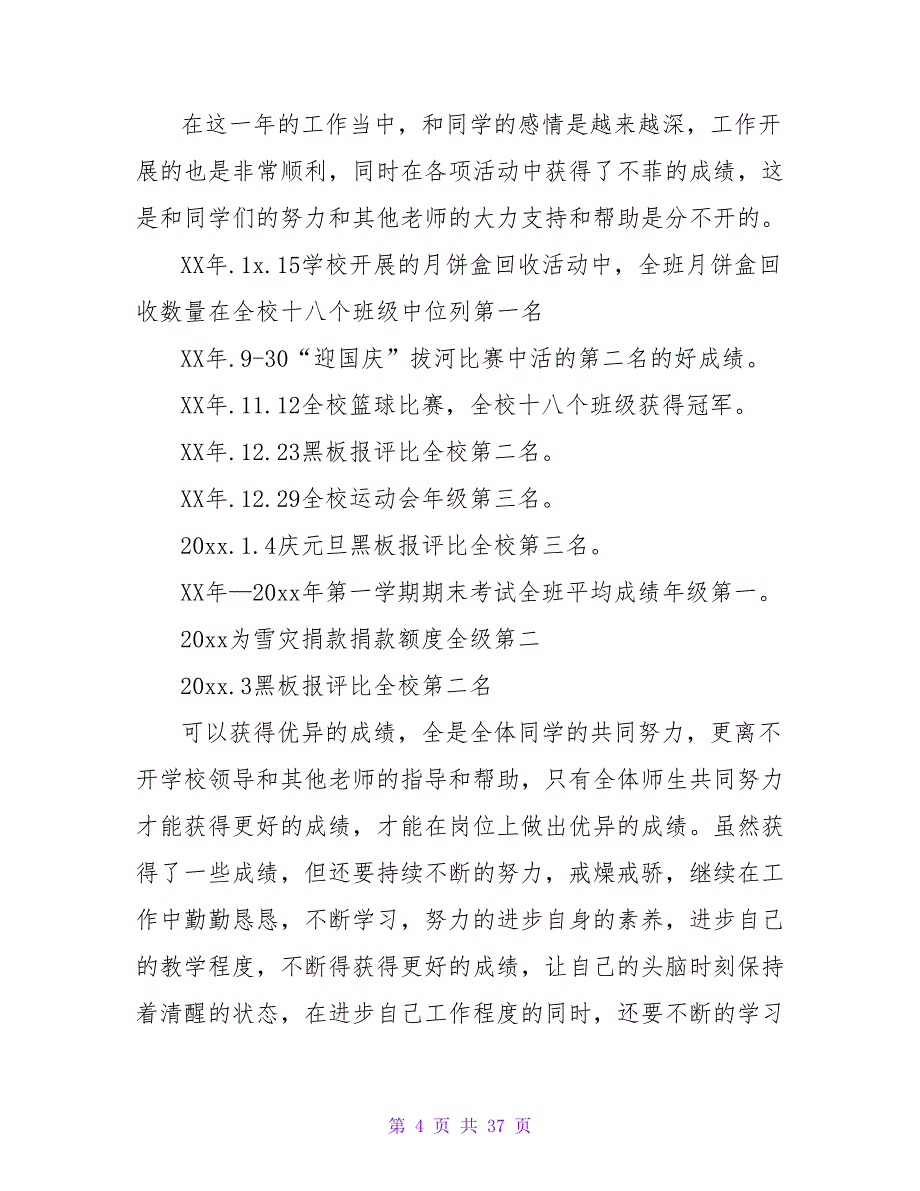 在这一年的工作当中，和同学的感情是越来越深，工作开
展的也是非常顺利，同时在各项活动中获得了不菲的成绩，这
是和同学们的努力和其他老师的大力支持和帮助是分不开的。
XX年.1x.15学校开展的月饼盒回收活动中，全班月饼盒回
收数量在全校十八个班级中位列第一名
XX年.9-30“迎国庆”拔河比赛中活的第二名的好成绩。
XX年.11.12全校篮球比赛，全校十八个班级获得冠军。
XX年.12.23黑板报评比全校第二名。
XX年.12.29全校运动会年级第三名。
20xx.1.4庆元旦黑板报评比全校第三名。
XX年—20xx年第一学期期末考试全班平均成绩年级第一。
20xx为雪灾捐款捐款额度全级第二
20xx.3黑板报评比全校第二名
可以获得优异的成绩，全是全体同学的共同努力，更离不
开学校领导和其他老师的指导和帮助，只有全体师生共同努力
才能获得更好的成绩，才能在岗位上做出优异的成绩。虽然获
得了一些成绩，但还要持续不断的努力，戒燥戒骄，继续在工
作中勤勤恳恳，不断学习，努力的进步自身的素养，进步自己
的教学程度，不断得获得更好的成绩，让自己的头脑时刻保持
着清醒的状态，在进步自己工作程度的同时，还要不断的学习
第 4 页 共 37 页